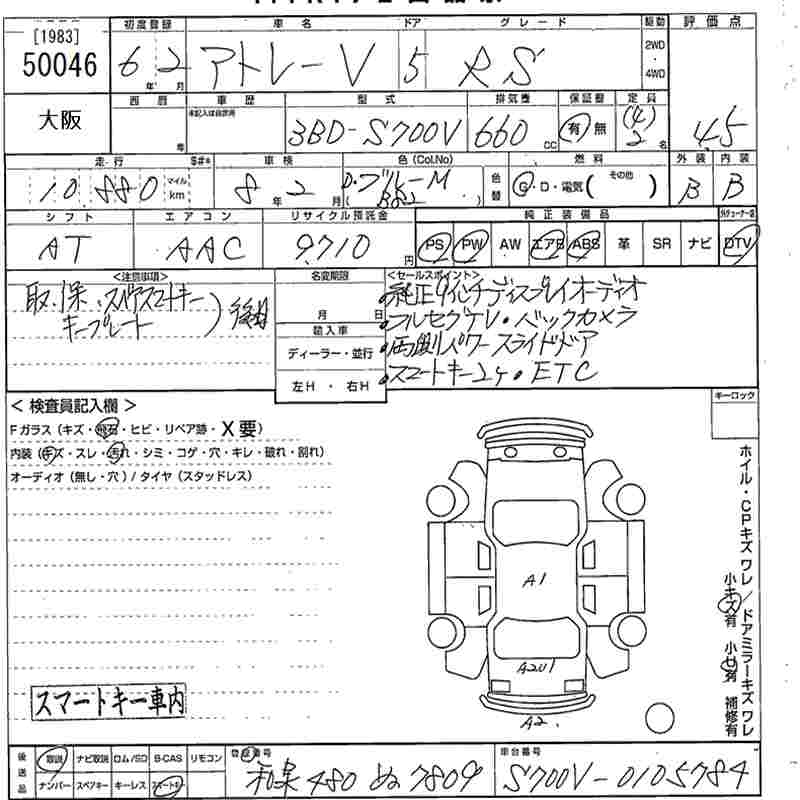 [1983]
50046
大阪
初度登録 車名 ドア グレード 駆動 評価点
6年 2月 アトレーV 5 RS 2WD・4WD 4.5
西暦 年 車歴 未記入は自家用 型式 排気量 保証書 定員
3BD-S700V 660cc 有・無 (4) 2名
走行 $#* 車検 色(Col.No) 燃料 外装 内装
10,880 マイル km 8年 2月 D.ブルーM ( ) 色替 G・D・電気( その他 ) B B
シフト エアコン リサイクル預託金 純正装備品
AT AAC 9710円 PS PW AW エアB ABS 革 SR ナビ DTV
<注意事項> 名変期限 <セールスポイント>
取.保.スペアスマートキー
キープレート )後日
月 日
輸入車
ディーラー・並行
左H・右H
純正9インチディスプレイオーディオ
フルセグTV・バックカメラ
両側パワースライドドア
スマートキー2ヶ・ETC
<検査員記入欄>
Fガラス(キズ・飛石・ヒビ・リペア跡・X要)
内装(キズ・スレ・汚れ・シミ・コゲ・穴・キレ・破れ・割れ)
オーディオ(無し・穴)/タイヤ(スタッドレス)
キーロック
ホイル・CPキズワレ/ドアミラーキズワレ
小キズ有 小凹有 補修有
A1
A2U1
A2
スマートキー車内
後送品 取説 ナビ取説 ロム/SD B-CAS リモコン
ナンバー スペアキー キーレス スマートキー
登録番号 和泉 480 ぬ 7809
車台番号 S700V-0105784